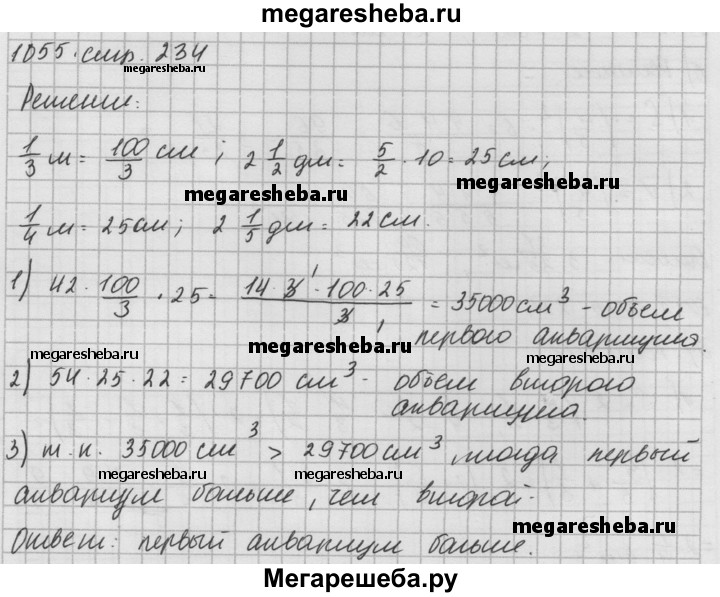 megaresheba.ru
1055 стр. 234
megaresheba.ru
Решение:
1/3 м = 100/3 см ; 2 1/2 дм = 5/2 · 10 = 25 см ;
megaresheba.ru megaresheba.ru
1/4 м = 25 см ; 2 1/5 дм = 22 см.
1) 42 · 100/3 · 25 = 14 · 3 1 · 100 · 25 / 3 1 = 35000 см³ - объем
первого аквариума.
megaresheba.ru megaresheba.ru
2) 54 · 25 · 22 = 29700 см³ - объем второго
аквариума.
megaresheba.ru
3) т.к. 35000 см³ > 29700 см³, тогда первый
megaresheba.ru megaresheba.ru
аквариум больше, чем второй.
megaresheba.ru
Ответ: первый аквариум больше.
Мегарешеба.ру